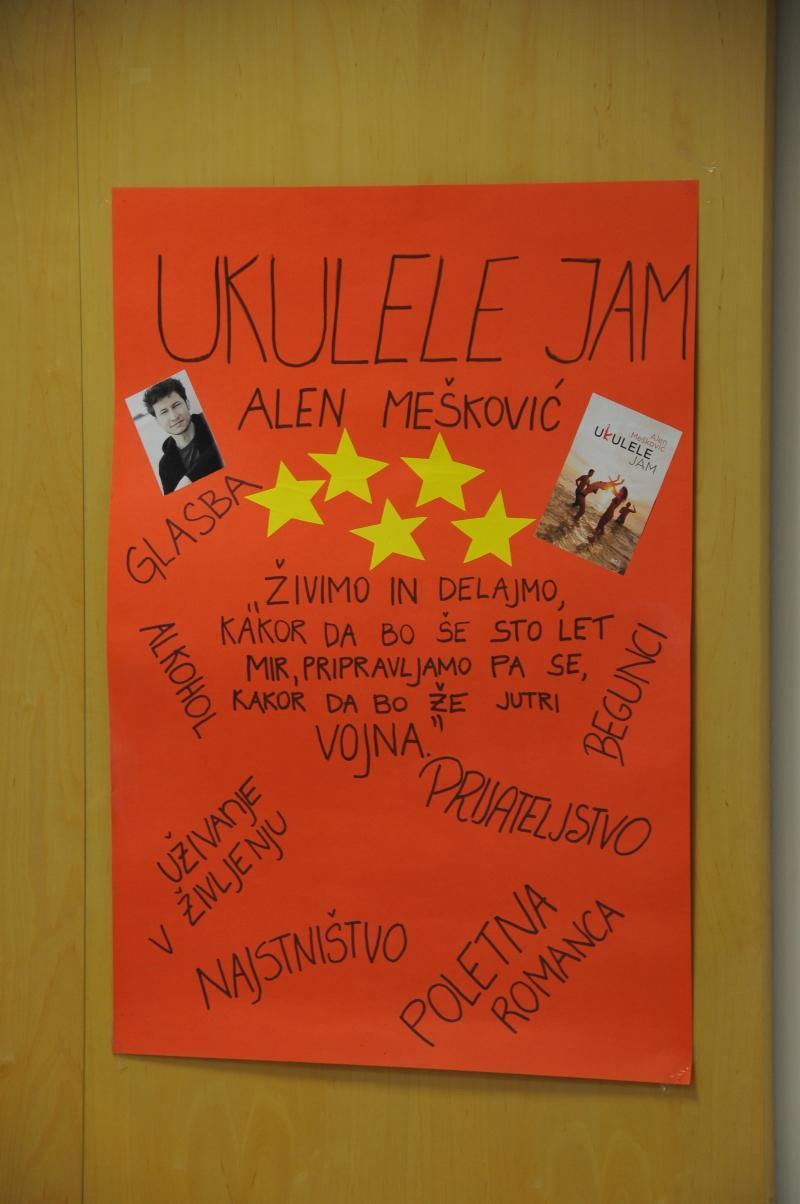 UKULELE JAM
ALEN MEŠKOVIĆ
Alen
Mešković
UKULELE
JAM
GLASBA
„ŽIVIMO IN DELAJMO,
KAKOR DA BO ŠE STO LET
MIR, PRIPRAVLJAMO PA SE,
KAKOR DA BO ŽE JUTRI
VOJNA.”
ALKOHOL
BEGUNCI
PRIJATELJSTVO
UŽIVANJE
V ŽIVLJENJU
NAJSTNIŠTVO
POLETNA
ROMANCA